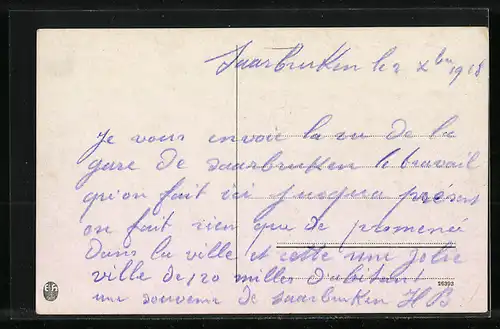 Saarbruken le 2 Xbre 1918
Je vous envoie la vu de la
gare de Saarbruken le travail
qu'on fait ici jusqua présent
on fait rien que de promené
Dans la ville et cette une jolie
ville de 120 milles d'abitant
une souvenir de Saarbruken H B